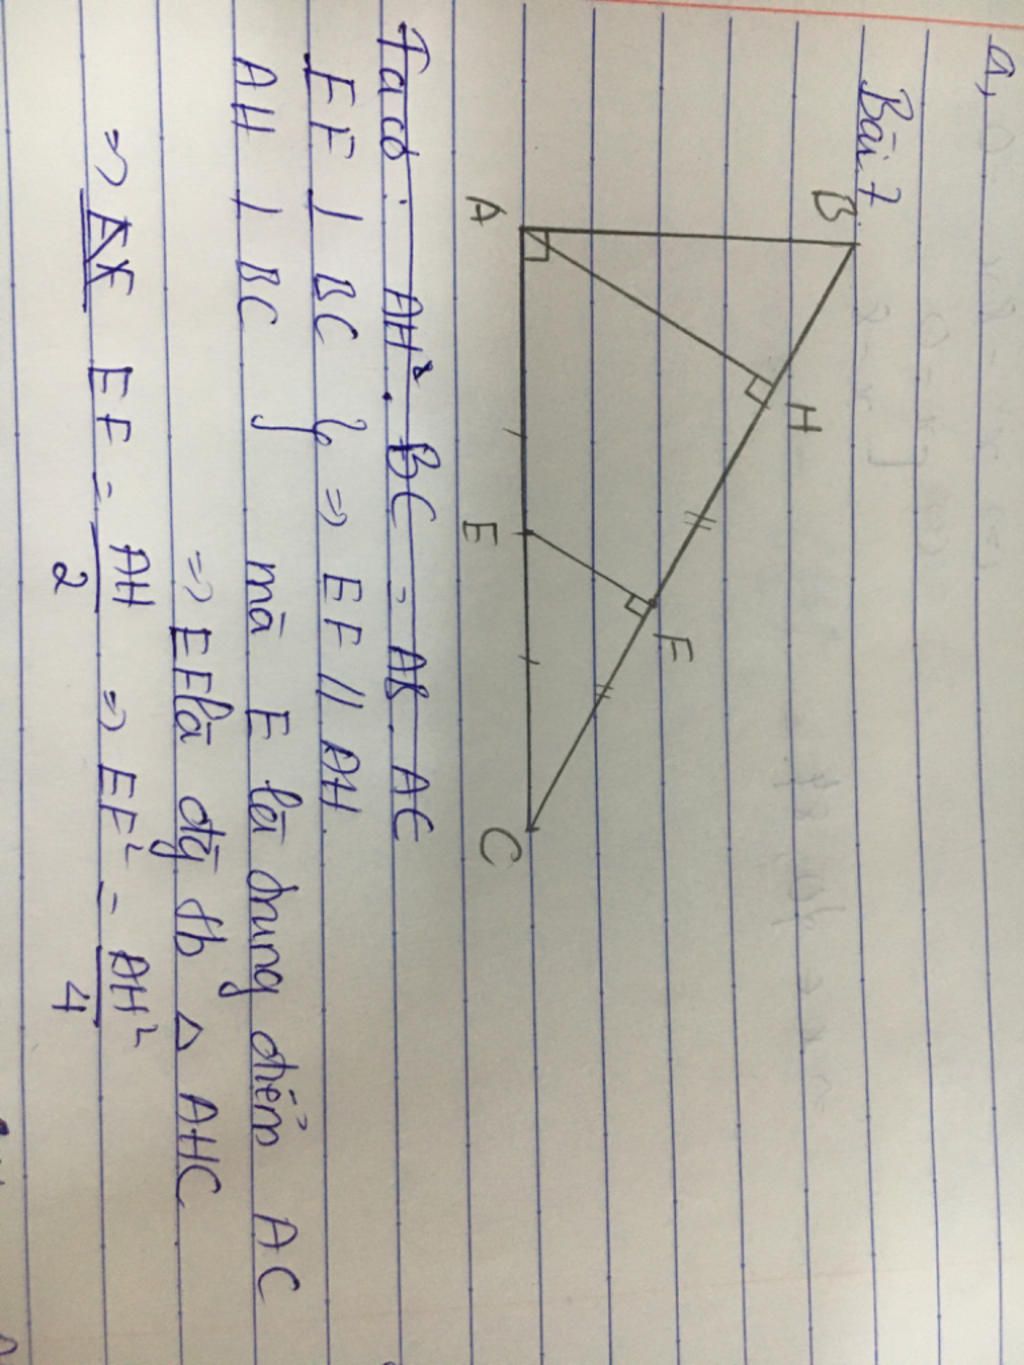 a,
Bài 7
B
H
F
A
E
C
Ta có : AH². BC = AB. AC
EF ⊥ BC } ⇒ EF // AH.
AH ⊥ BC
mà E là trung điểm AC
⇒ EF là đg tb Δ AHC
⇒ EF = AH/2 ⇒ EF² = AH²/4